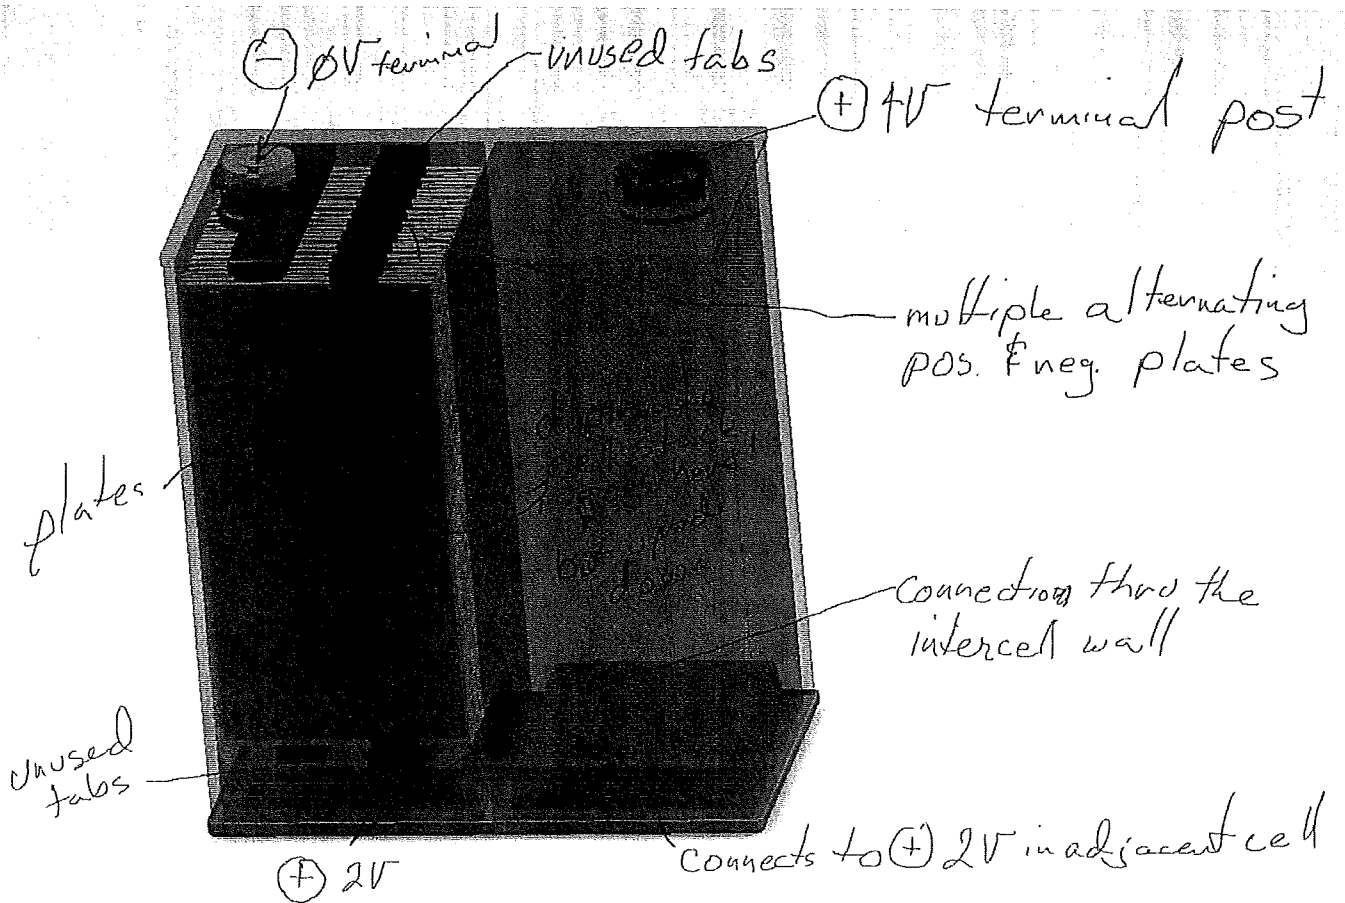 ⊖ ØV terminal
unused tabs
⊕ 4V terminal post
multiple alternating
pos. & neg. plates
plates
connection thru the
intercel wall
unused
tabs
⊕ 2V
connects to ⊕ 2V in adjacent cell